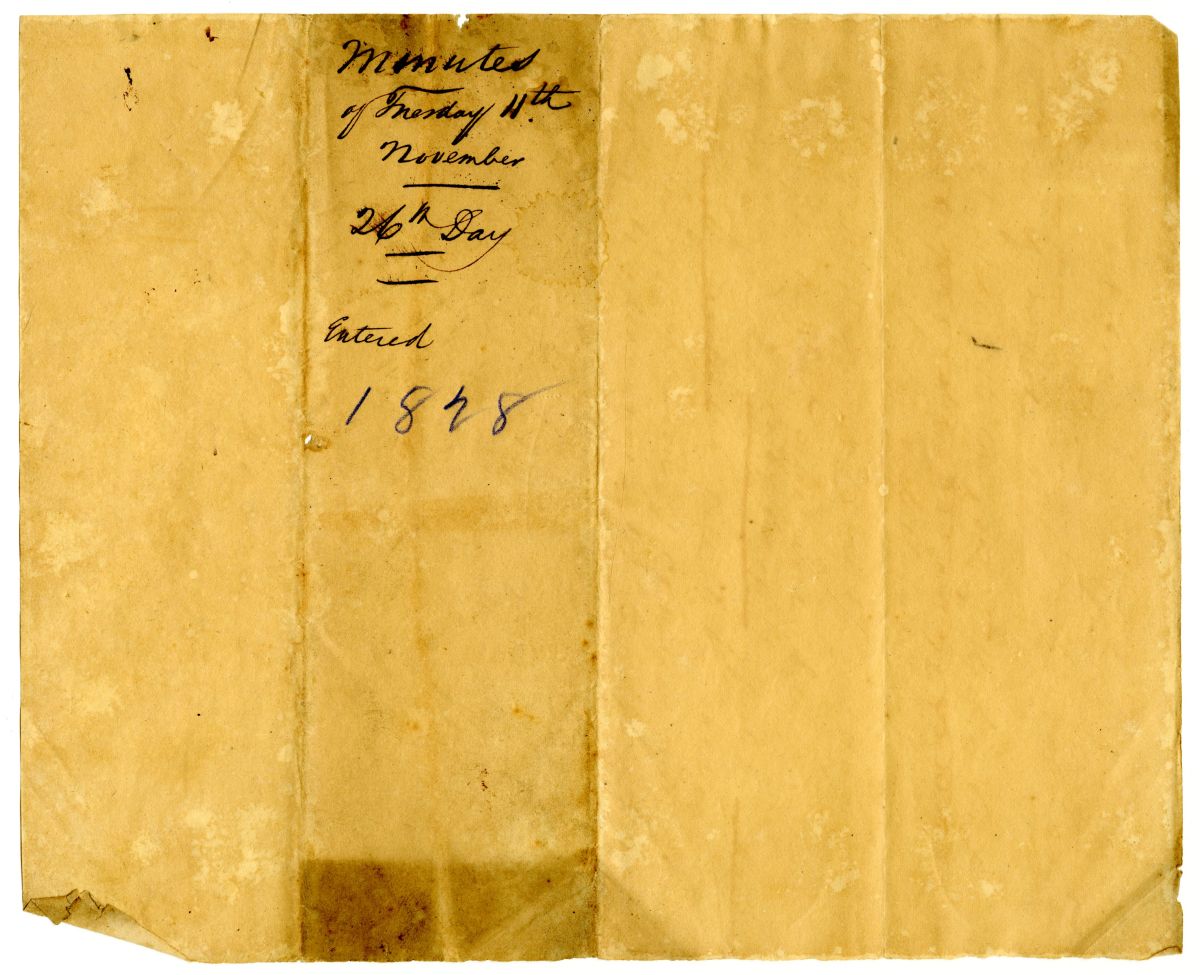 Minutes
of Tuesday 4th
November
26th Day
Entered
1828